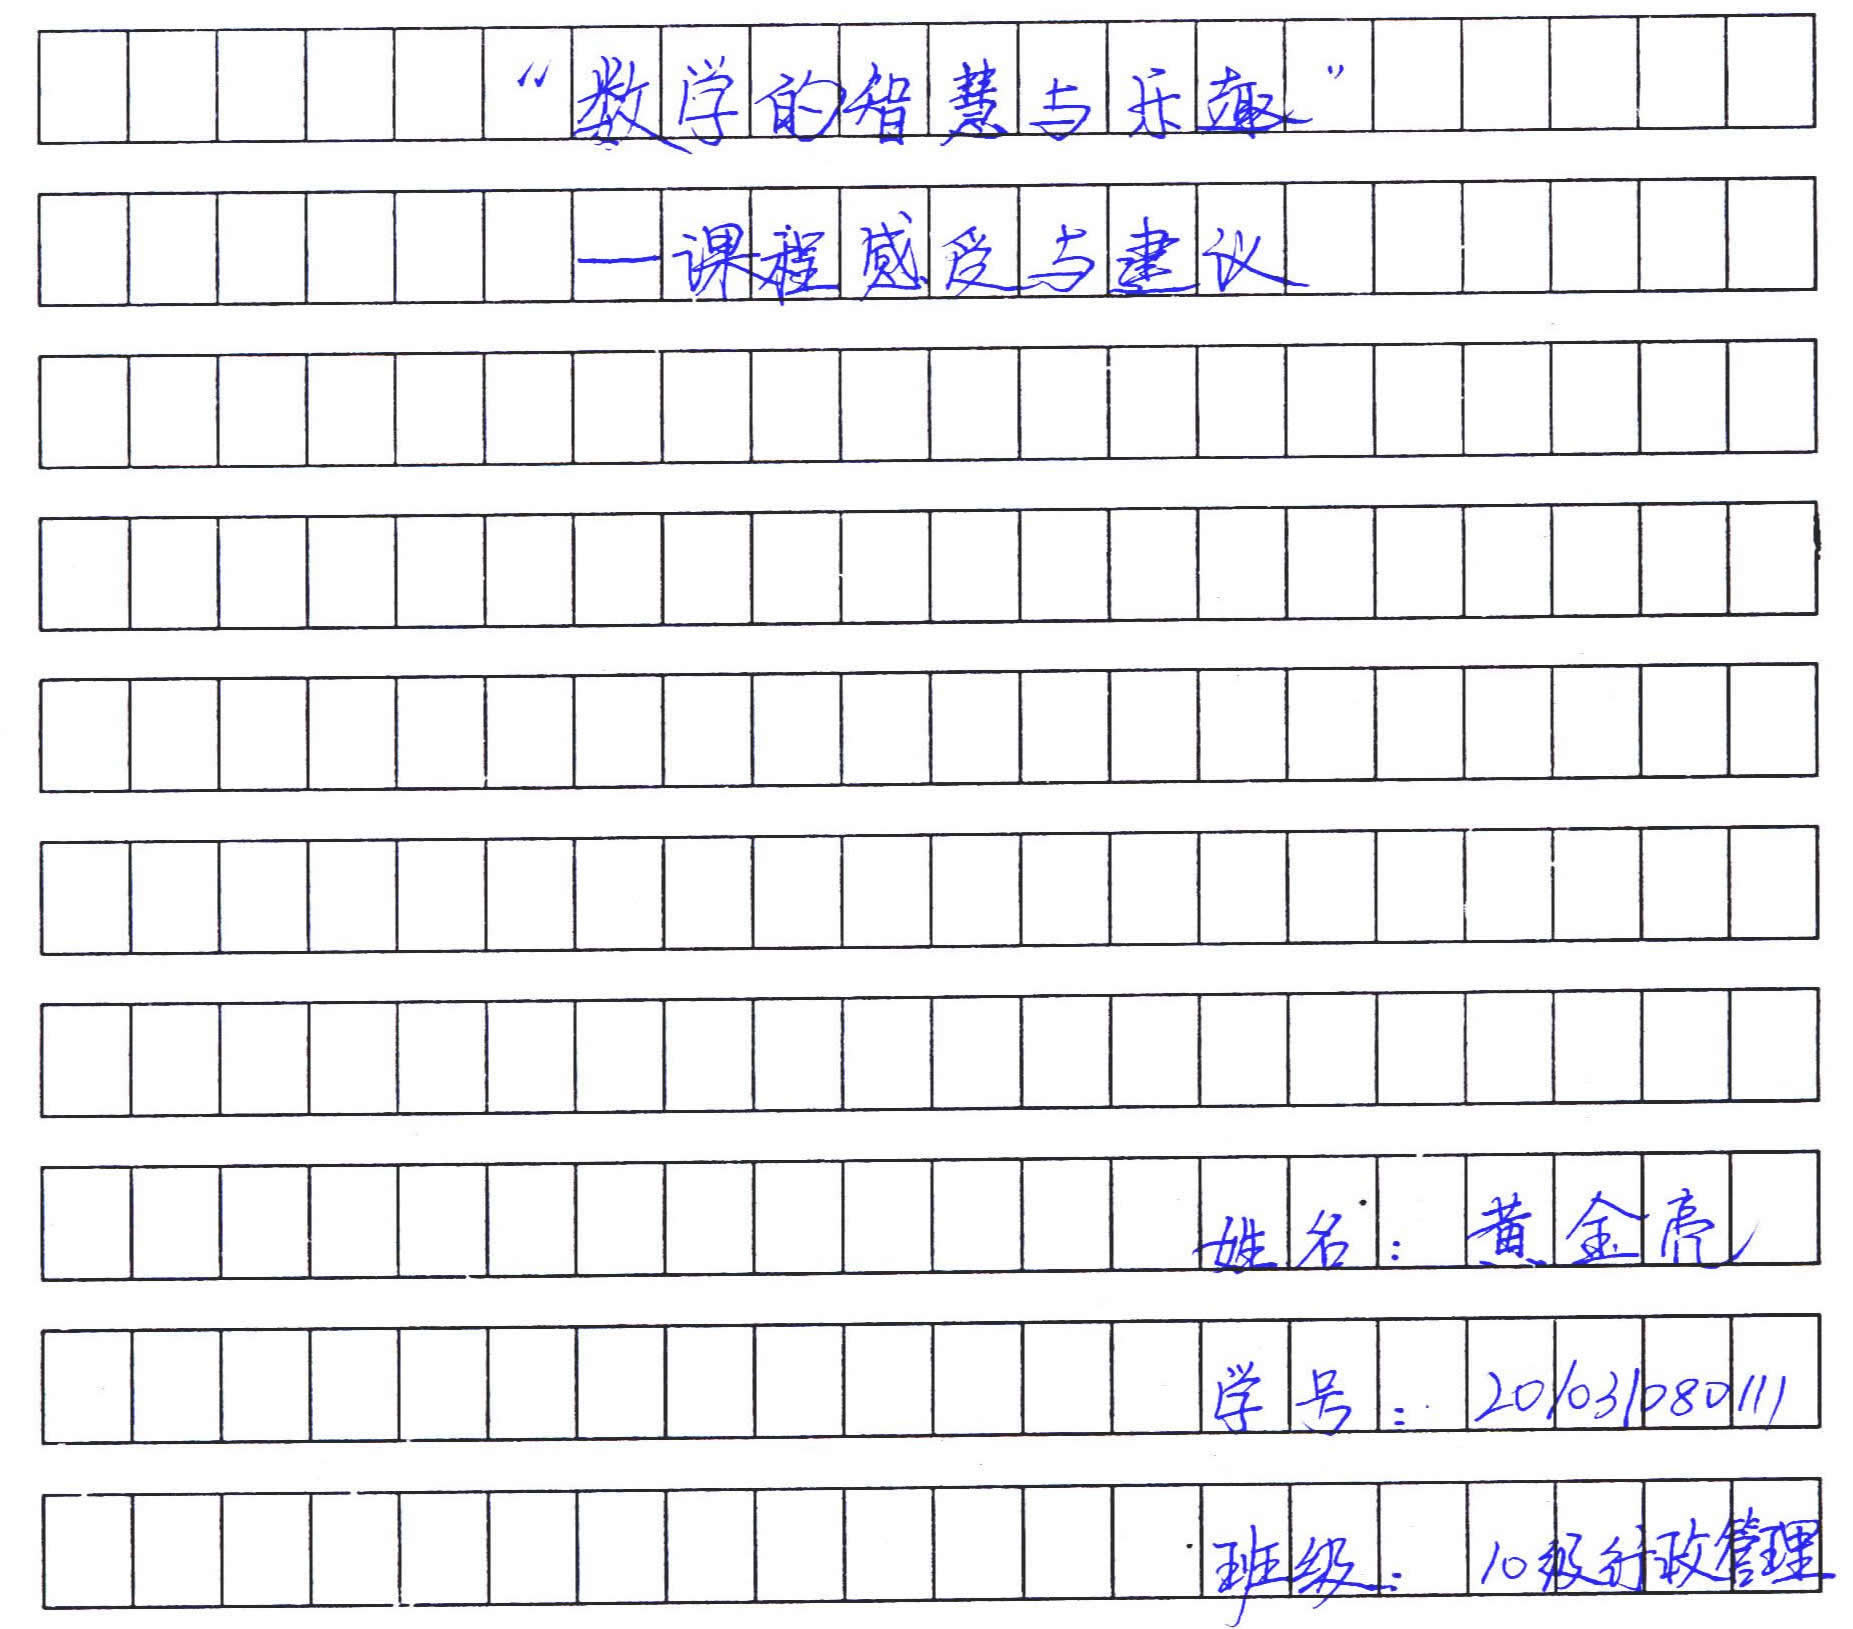 “数学的智慧与乐趣”
—课程感受与建议
姓名：黄金亮
学号：201031080111
班级：10级行政管理